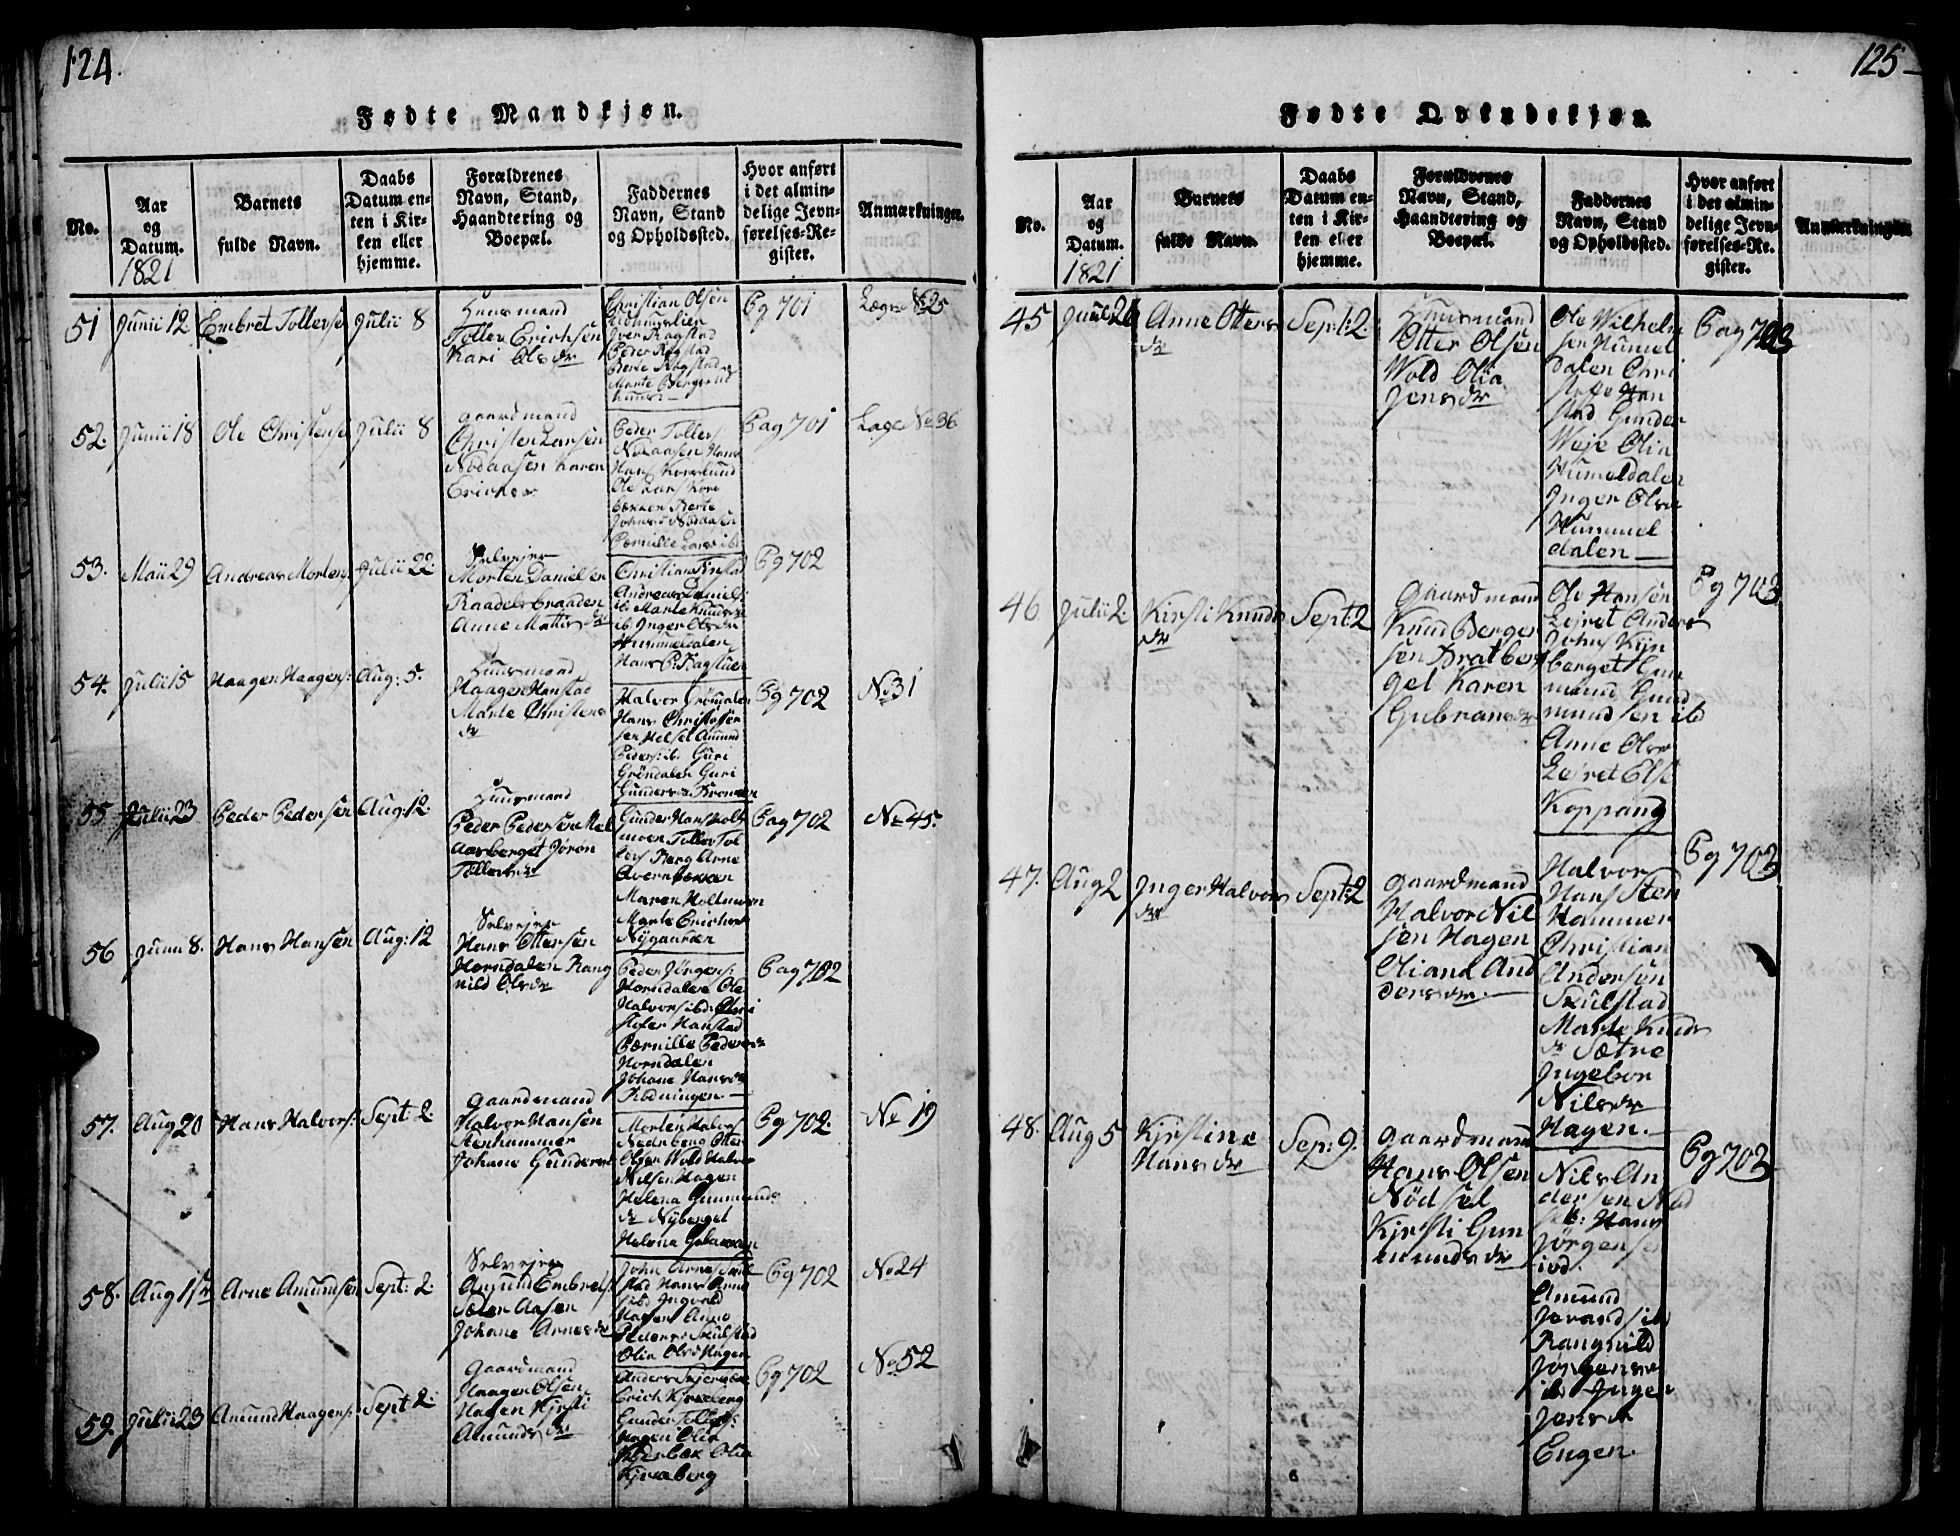 124.
Fødte Mandkjøn.
No.
Aar
og
Datum.
1821
Barnets
fulde Navn.
Daabs
Datum en-
ten i Kir-
ken eller
hjemme.
Forældrenes
Navn, Stand,
Haandtering og
Boepæl.
Faddernes
Navn, Stand
og Opholdssted.
Hvor anført
i det almin-
delige Jevn-
førelses-Re-
gister.
Anmærkninger.
51 Junii 12 Embret Tollevse Julii 8
Huusmand
Tollev Erichsen
Kari Olsdr
Christian Olsen
Iver Ragstad
Peder Ragstad
Berte Ragstad
Marte Bergerud
Pg 701
No 25
52. Junii 18 Ole Christense Julii 8
Gaardmand
Christen Larsen
Nødaasen Karen
Erichsdr
Peder Tollefs:
Nødaasen Hans
Ole Lars
Berte
Johns Nødaasen
Pernille Larsd ib
Pag 701
No 36
53. Maii 29 Andreas Mortens Julii 22
Selvejer
Morten Danielsen
Raadelsbraaden
Anne Mattisdr
Andreas Daniels:
ib Marte Knudsdr
ib Inger Olsdr
Hummeldalen
Hans P: Ragstuen
Pg 702
54. Julii 5 Haagen Haagens: Aug: 5.
Huusmand
Haagen Hanstad
Marte Christens
dr
Halvor Grøndalen
Hans Christoffer
sen Helset Amund
Peders: ib: Guri
Grøndalen Guri
Gundersdr
Pg 702
No 31
55 Julii 23 Peder Pedersen Aug: 12.
Huusmand
Peder Pedersen Mel
aasberget Joron
Tollevsdr
Gunder Hans Holt
moen Tollev Tol
levs Berg Arne
Qvernbekken
Maren Holtmoen
Marte Erichsdr
Nÿgaarden
Pag 702
No 45.
56 Junii 8. Hans Hansen Aug: 12
Selvejer
Hans Ottersen
Horndalen Rang
nild Olsdr
Peder Jørgens:
Horndalen Ole
Halvors ibd: Chri
stofer Hanstad
Pernille Pedersdr
Horndalen
Johane Hansdr
Rødningen
Pag 702
57. Aug 20 Hans Halvors: Sept: 2
Gaardmand
Halvor Hansen
Stenhammer
Johane Gundersdr
Morten Halvors
Nedrberg Otter
Olsen Wold Halvor
Nilsen Hagen
Helena Gunmunds
dr Nÿberget
Helena
Pg 702.
No 19
58. Aug 1ste Arne Amundsen Sept: 2
Selvejer
Amund Embrets:
Sæter Aasen
Johane Arnesdr
John Arnes Skul
stad Hans Arne
s ib: Ingvold
Hagen Anne
Pedersdr Skulstad
Olia Olsd Hagen
Pg 702
No 24
59. Julii 23 Amund Haagens: Sept 2
Gaardmand
Haagen Olsen
Hagen Kjrsti
Amundsdr
Anders
Erich Kjrneberg
Gunder Tollefs:
Hagen Olia
Olia
Kjrneberg
Pg 702
No 52
125
Fødte Qvindekjøn.
No.
Aar
og
Datum.
1821
Barnets
fulde Navn.
Daabs
Datum en-
ten i Kir-
ken eller
hjemme.
Forældrenes
Navn, Stand,
Haandtering og
Boepæl.
Faddernes
Navn, Stand
og Opholdssted.
Hvor anført
i det almin-
delige Jevn-
førelses-Re-
gister.
Anmærkninger.
45 Juul 26 Anne Otters
dr
Sept: 2.
Huusmand
Otter Olsen
Wold Olia
Jensdr
Ole Wilhelm
sen Humel
dalen Chri
stoffer Han
stad Gunder
Weje Olia
Humeldalen
Inger Olsdr
Hummel
dalen
Pag 703
46. Julii 2. Kirsti Knuds
dr
Sept: 2
Gaardmand
Knud Berger
sen Bratber
get Karen
Gubransdr
Ole Hansen
Lejret Anders
Johns Kÿn
berget Gun
mund Gund
mundsen ib
Anne Olsdr
Lejret Else
Koppang
Pg 703
47. Aug 2 Inger Halvors
dr
Sept: 2
Gaardmand
Halvor Nil
sen Hagen
Oliana And
dersdr
Halvor
Hans Sten
Hammer
Christian
Andersen
Skulstad
Marte Knuds
dr Sætre
Ingebor
Nilsdr
Hagen.
Pg 703
48. Aug 5 Kjrstine
Hansdr
Sep: 9.
Gaardmand
Hans Olsen
Nødsel
Kjrsti Gun
mundsdr
Nils An
dersen Nød
sel: Hans
Jørgensen
ibd.
Amund
Jorands ib
Rangnild
Jørgensdr
ib Inger
Jensdr
Engen.
Pg 703